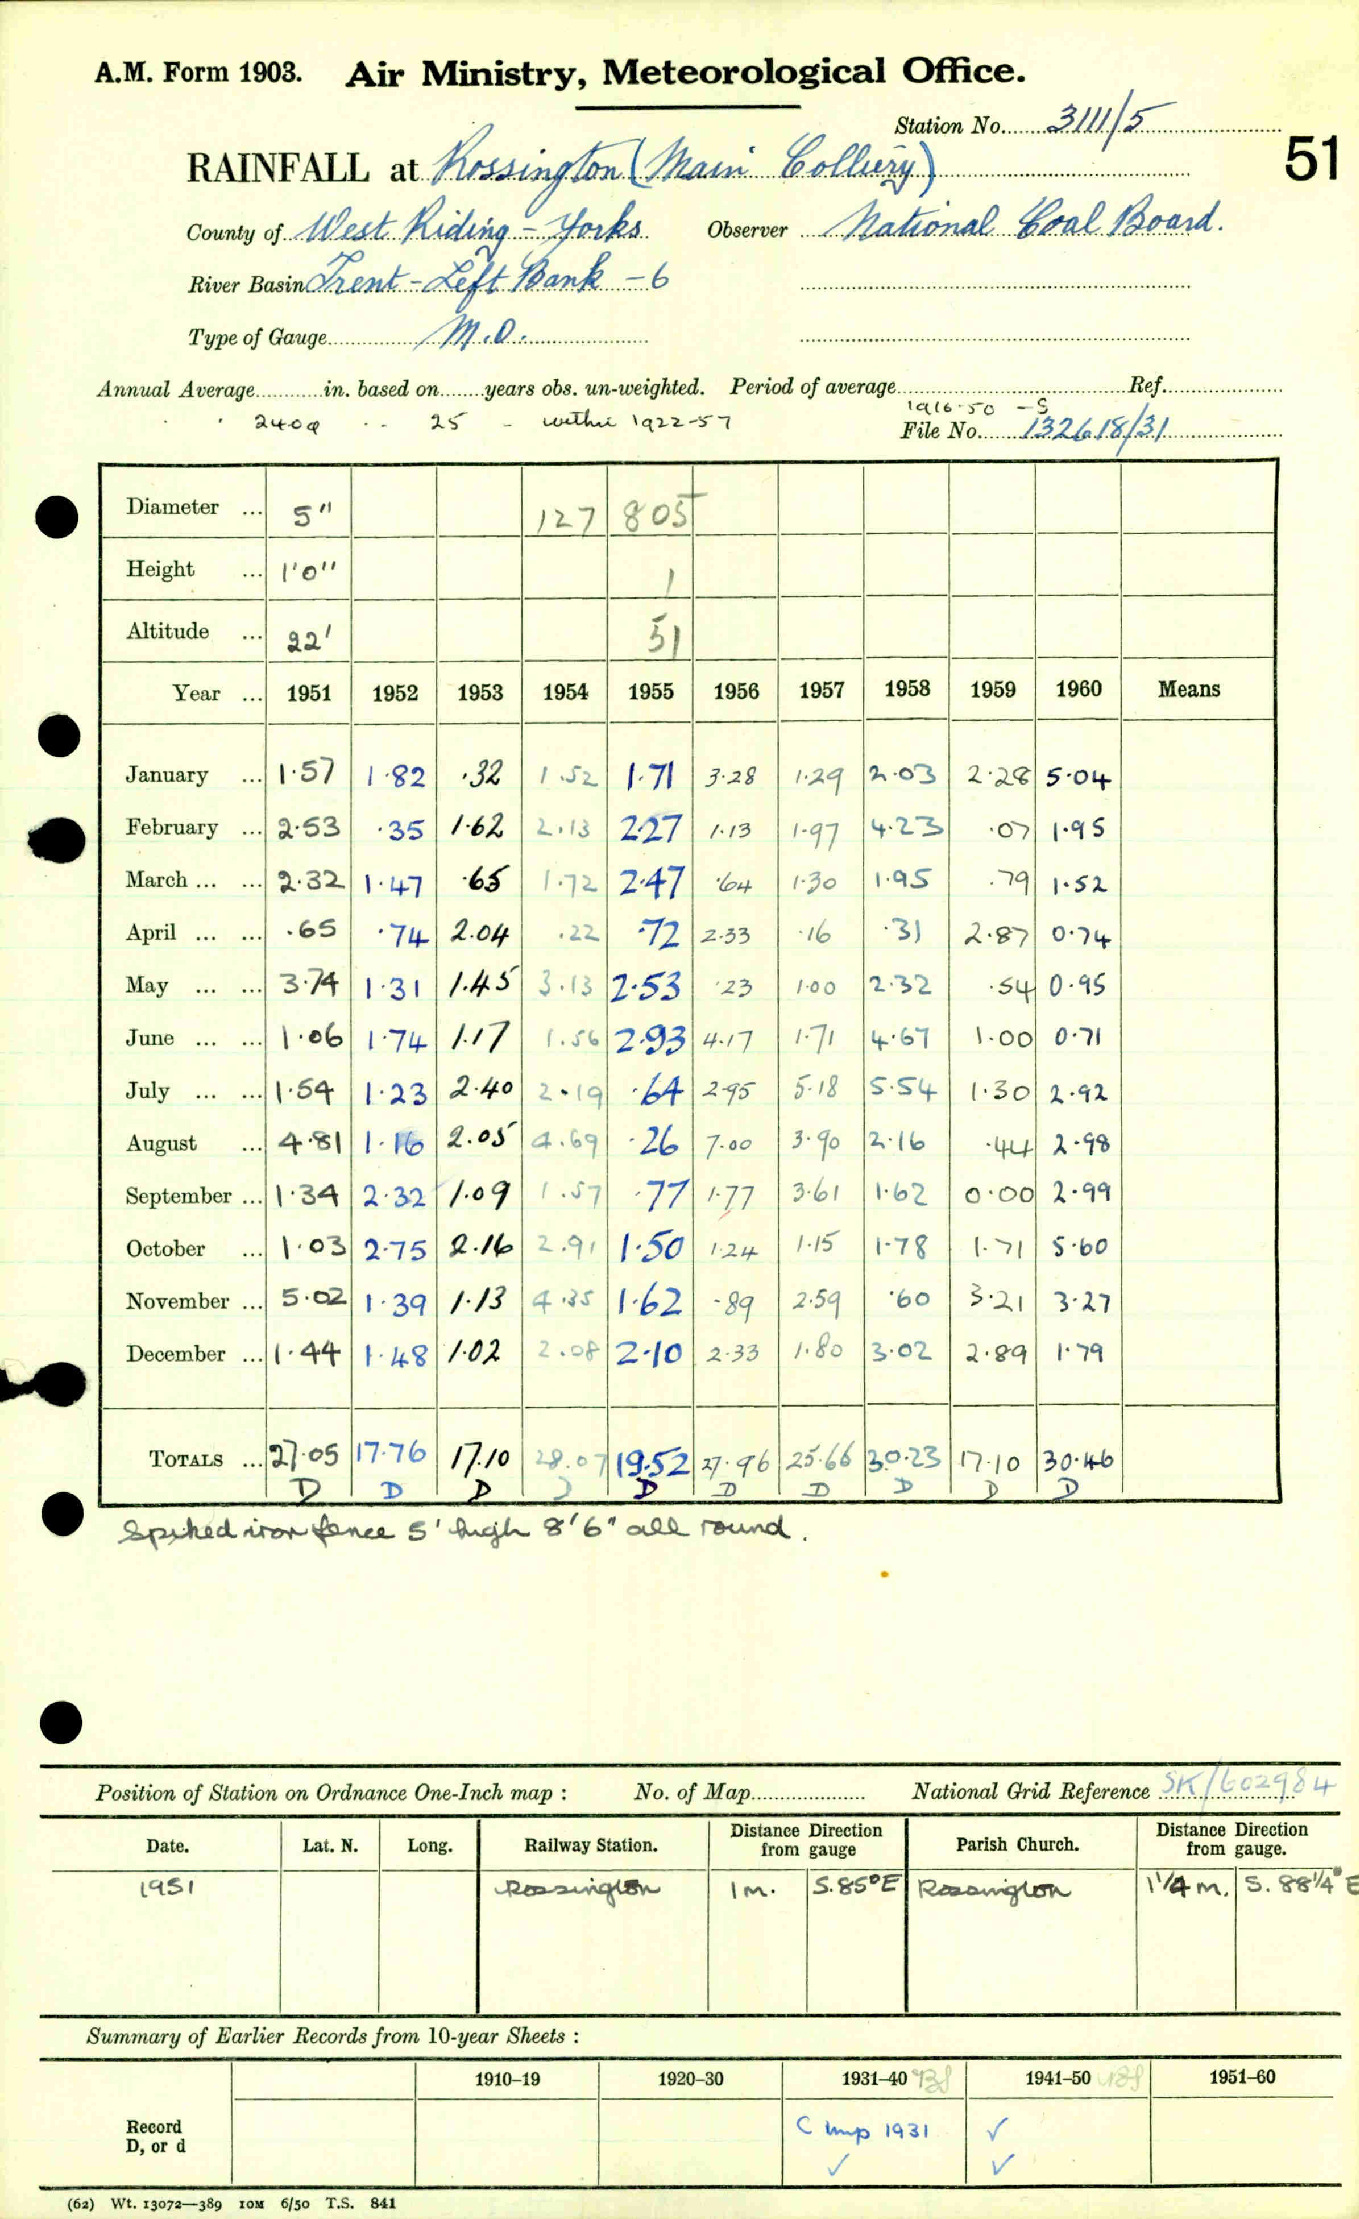 A.M. Form 1903. Air Ministry, Meteorological Office.
Station No. 3111/5
51
RAINFALL at Rossington (Main Colliery)
County of West Riding - Yorks Observer National Coal Board.
River Basin Trent - Left Bank - 6
Type of Gauge M.O.
Annual Average in. based on years obs. un-weighted. Period of average Ref.
2409 25 within 1922-57 1916-50 -S
File No. 132618/31
Diameter ... 5" 127 805
Height ... 1'0" 1
Altitude ... 22' 51
Year ... 1951 1952 1953 1954 1955 1956 1957 1958 1959 1960 Means
January ... 1.57 1.82 .32 1.52 1.71 3.28 1.29 2.03 2.28 5.04
February ... 2.53 .35 1.62 2.13 2.27 1.13 1.97 4.23 .07 1.95
March ... ... 2.32 1.47 .65 1.72 2.47 .64 1.30 1.95 .79 1.52
April ... ... .65 .74 2.04 .22 .72 2.33 .16 .31 2.87 0.74
May ... ... 3.74 1.31 1.45 3.13 2.53 .23 1.00 2.32 .54 0.95
June ... ... 1.06 1.74 1.17 1.56 2.93 4.17 1.71 4.67 1.00 0.71
July ... ... 1.54 1.23 2.40 2.19 .64 2.95 5.18 5.54 1.30 2.92
August ... 4.81 1.16 2.05 4.69 .26 7.00 3.90 2.16 .44 2.98
September ... 1.34 2.32 1.09 1.57 .77 1.77 3.61 1.62 0.00 2.99
October ... 1.03 2.75 2.16 2.91 1.50 1.24 1.15 1.78 1.71 5.60
November ... 5.02 1.39 1.13 4.35 1.62 .89 2.59 .60 3.21 3.27
December ... 1.44 1.48 1.02 2.08 2.10 2.33 1.80 3.02 2.89 1.79
TOTALS ... 27.05 17.76 17.10 28.07 19.52 27.96 25.66 30.23 17.10 30.46
D D D D D D D D D D
Spiked iron fence 5' high 8'6" all round.
Position of Station on Ordnance One-Inch map : No. of Map National Grid Reference SK/602984
Date. Lat. N. Long. Railway Station. Distance Direction from gauge Parish Church. Distance Direction from gauge.
1951 Rossington 1 m. S.85°E Rossington 1 1/4 m. S. 88 1/4° E
Summary of Earlier Records from 10-year Sheets :
1910–19 1920–30 1931–40 1941–50 1951–60
Record C Imp 1931 ✓
D, or d ✓ ✓
(62) Wt. 13072—389 10M 6/50 T.S. 841